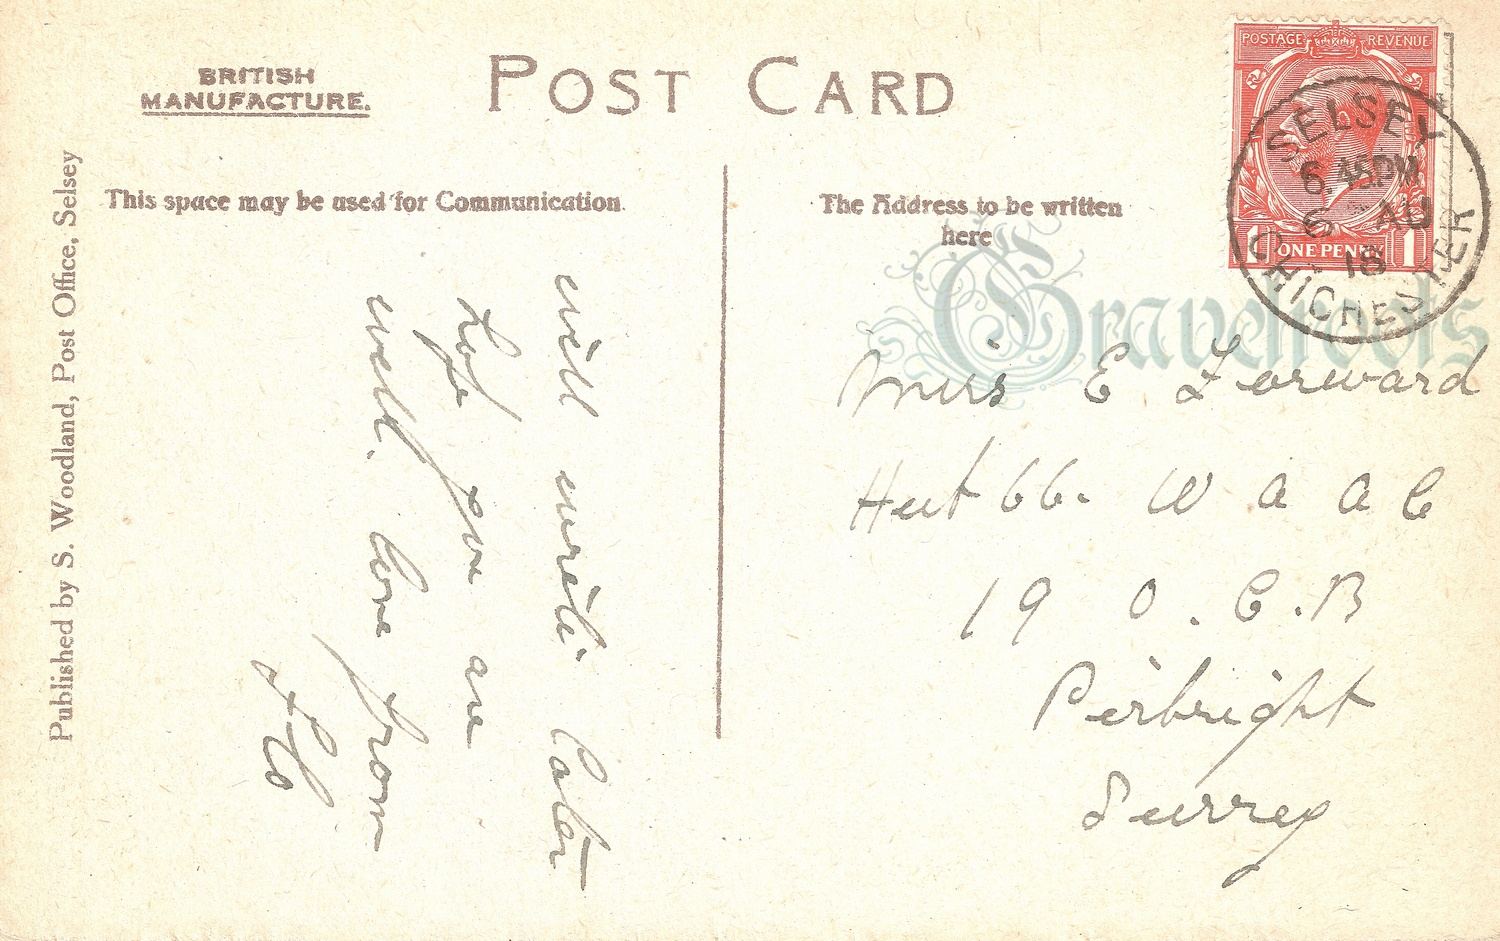 BRITISH
MANUFACTURE.
POST CARD
This space may be used for Communication
The Address to be written
here
POSTAGE REVENUE
1 ONE PENNY 1
SELSEY
6.45PM
6 AU
18
CHICHESTER
Gravelroots
will write later
hope you are
well. love from
Flo
Miss E Forward
Hut 66. W A A C
19 O. C. B
Pirbright
Surrey
Published by S. Woodland, Post Office, Selsey